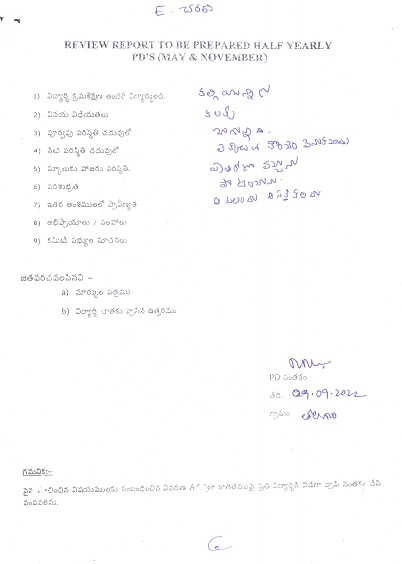 E. చరణ్
REVIEW REPORT TO BE PREPARED HALF YEARLY
PD'S (MAY & NOVEMBER)
1) విద్యార్థి క్రమశిక్షణ అందరి విద్యార్థులది. కల్గి యున్నాడు
2) వినయ విధేయతలు కలవు
3) పూర్వపు పరిస్థితి చదువులో బాగున్నది.
4) నేటి పరిస్థితి చదువులో
5) స్కూలుకు హాజరు పరిస్థితి.
6) పరిశుభ్రత
7) ఇతర అంశములలో ప్రావీణ్యత ఆటలందు ఆసక్తి కలదు
8) అభిప్రాయాలు / సలహాలు
9) కమిటీ సభ్యుల సూచనలు
జతపరచవలసినవి :-
a) మార్కుల పత్రము
b) విద్యార్థి దాతకు వ్రాసిన ఉత్తరము
PD సంతకం
తేది. 09.09.2022
గ్రామం
గమనిక:-
సూచించిన విషయములకు సంబంధించిన వివరణ కాగితముపై ప్రతి విద్యార్థికి విడిగా వ్రాసి సంతకం చేసి
పంపవలెను.